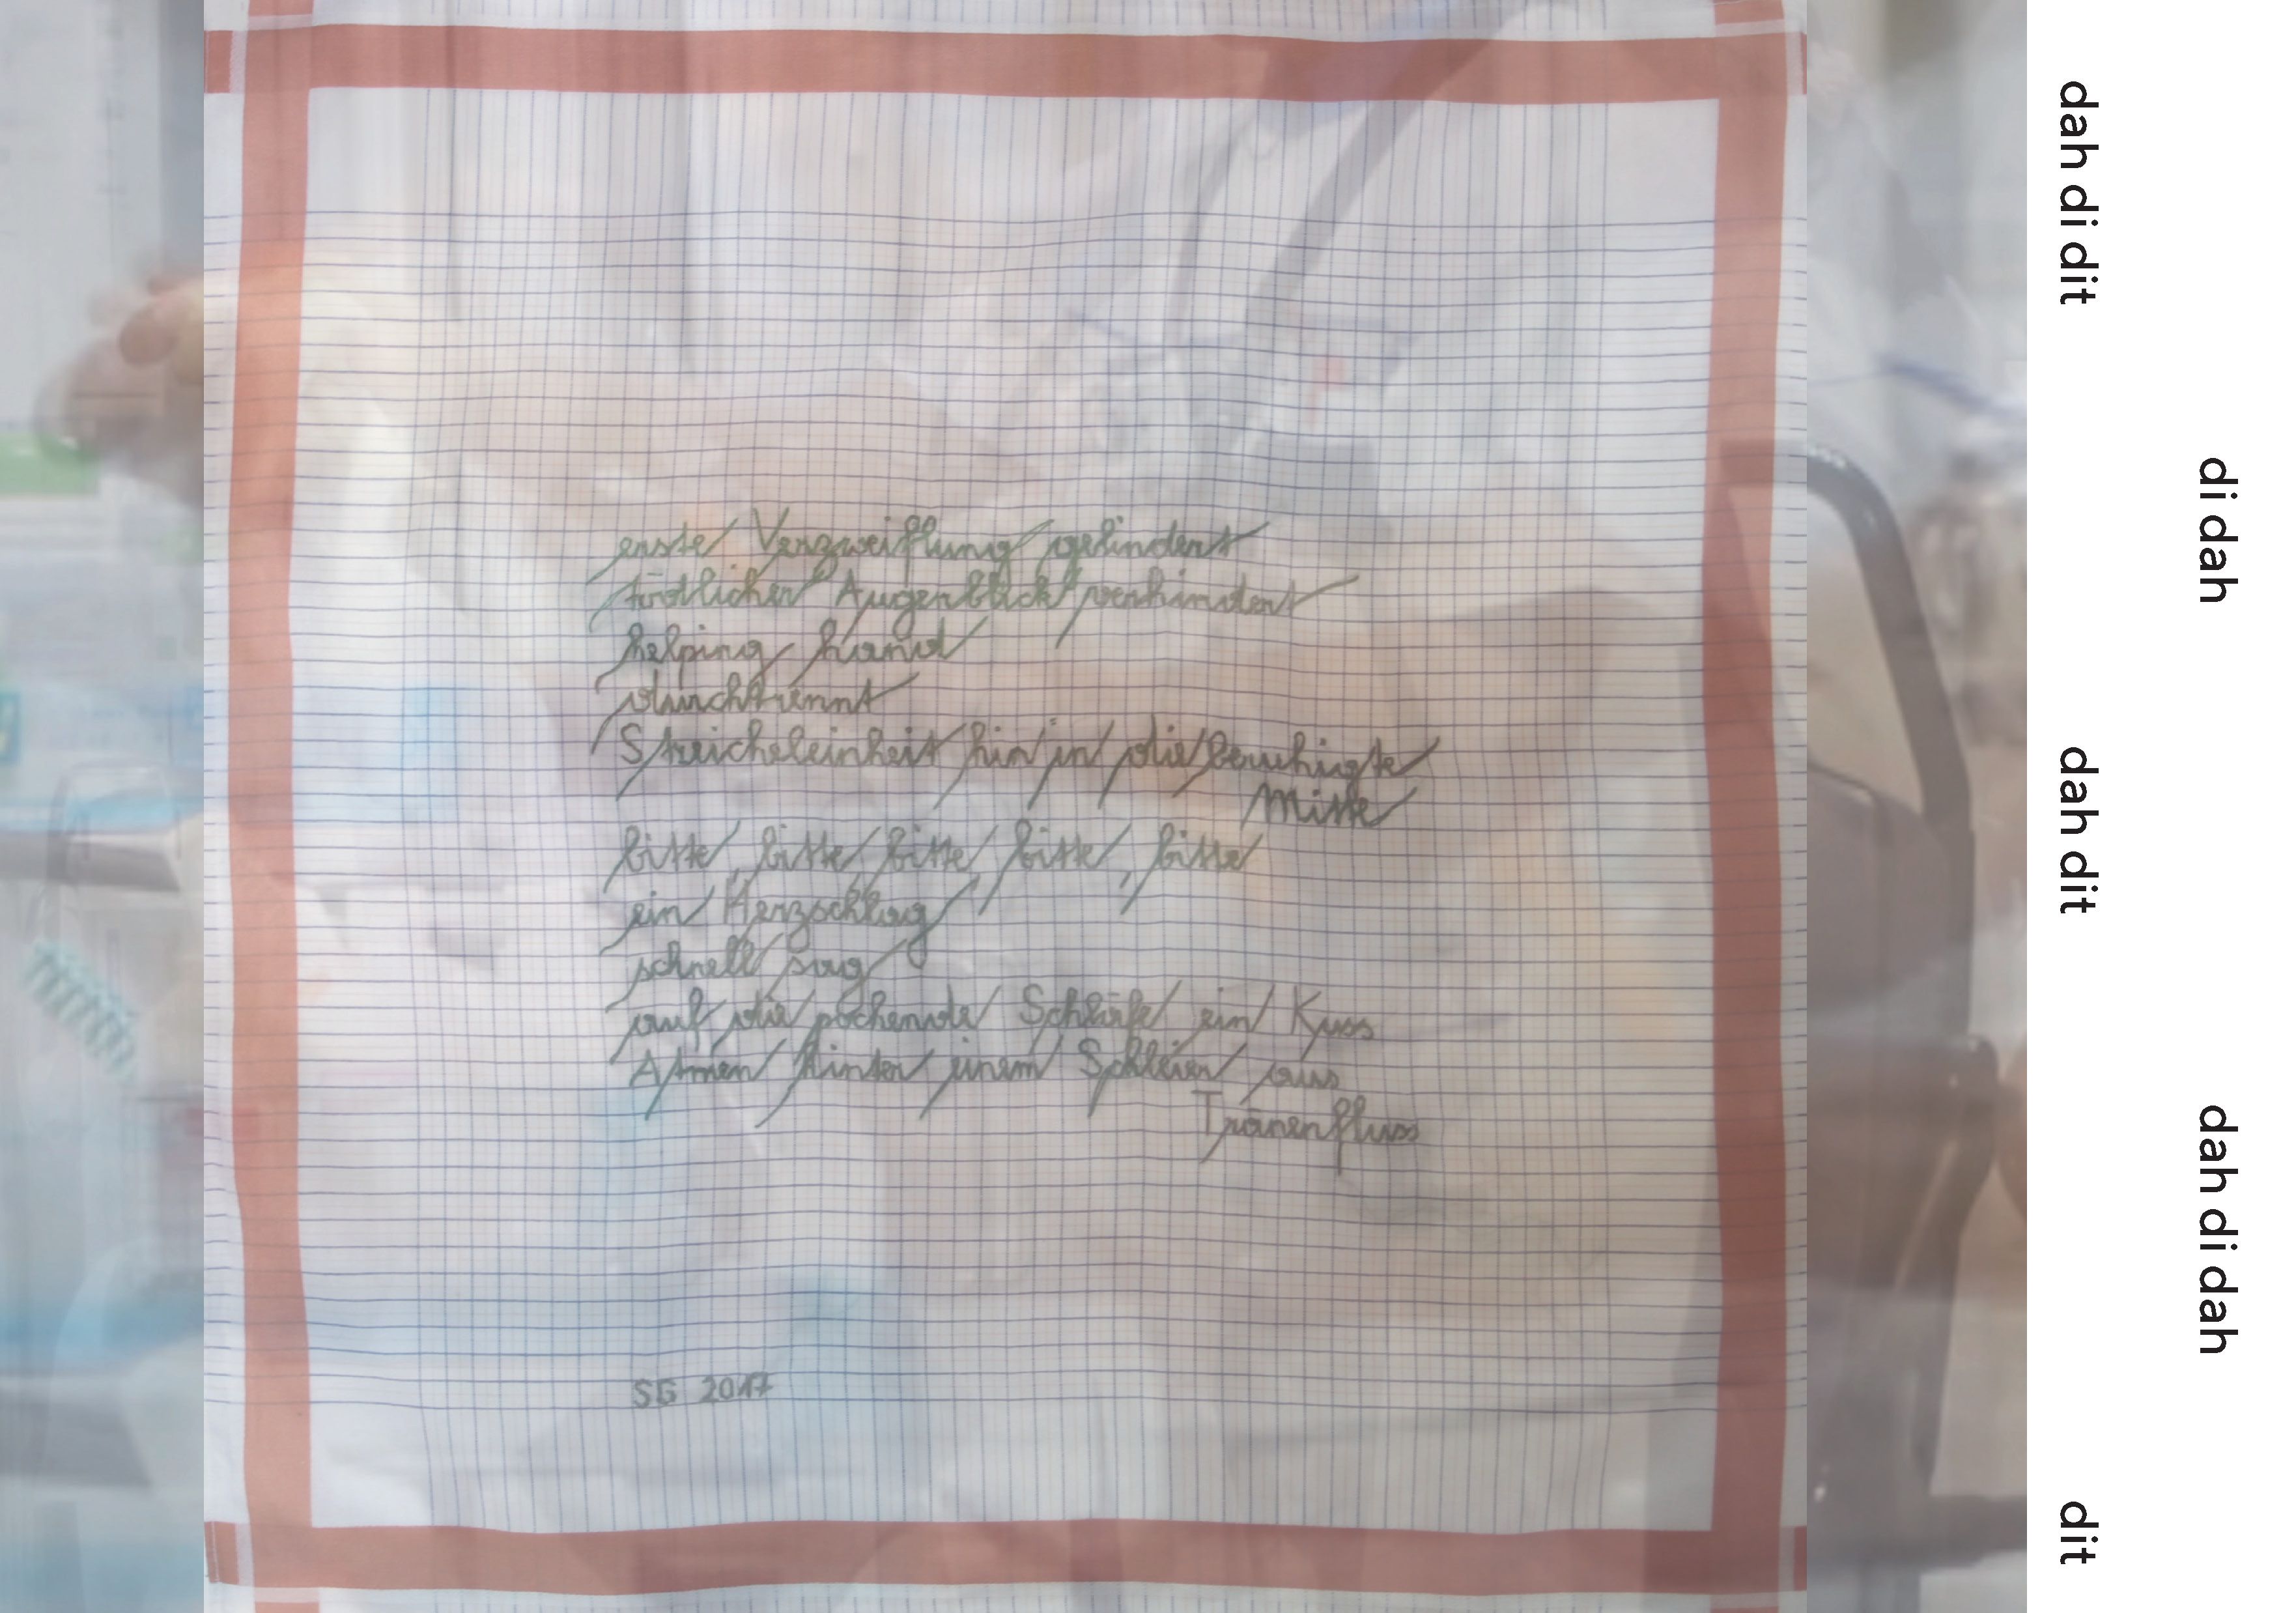 erste Verzweiflung gelindert
tödlicher Augenblick verhindert
helping hand
durchtrennt
Streicheleinheit hin in die beruhigte
Mitte
bitte, bitte, bitte, bitte, bitte
ein Herzschlag
schnell sag
auf die pochende Schläfe ein Kuss
Atmen hinter einem Schleier aus
Tränenfluss
SG 2017
dah di dit
di dah
dah dit
dah di dah
dit